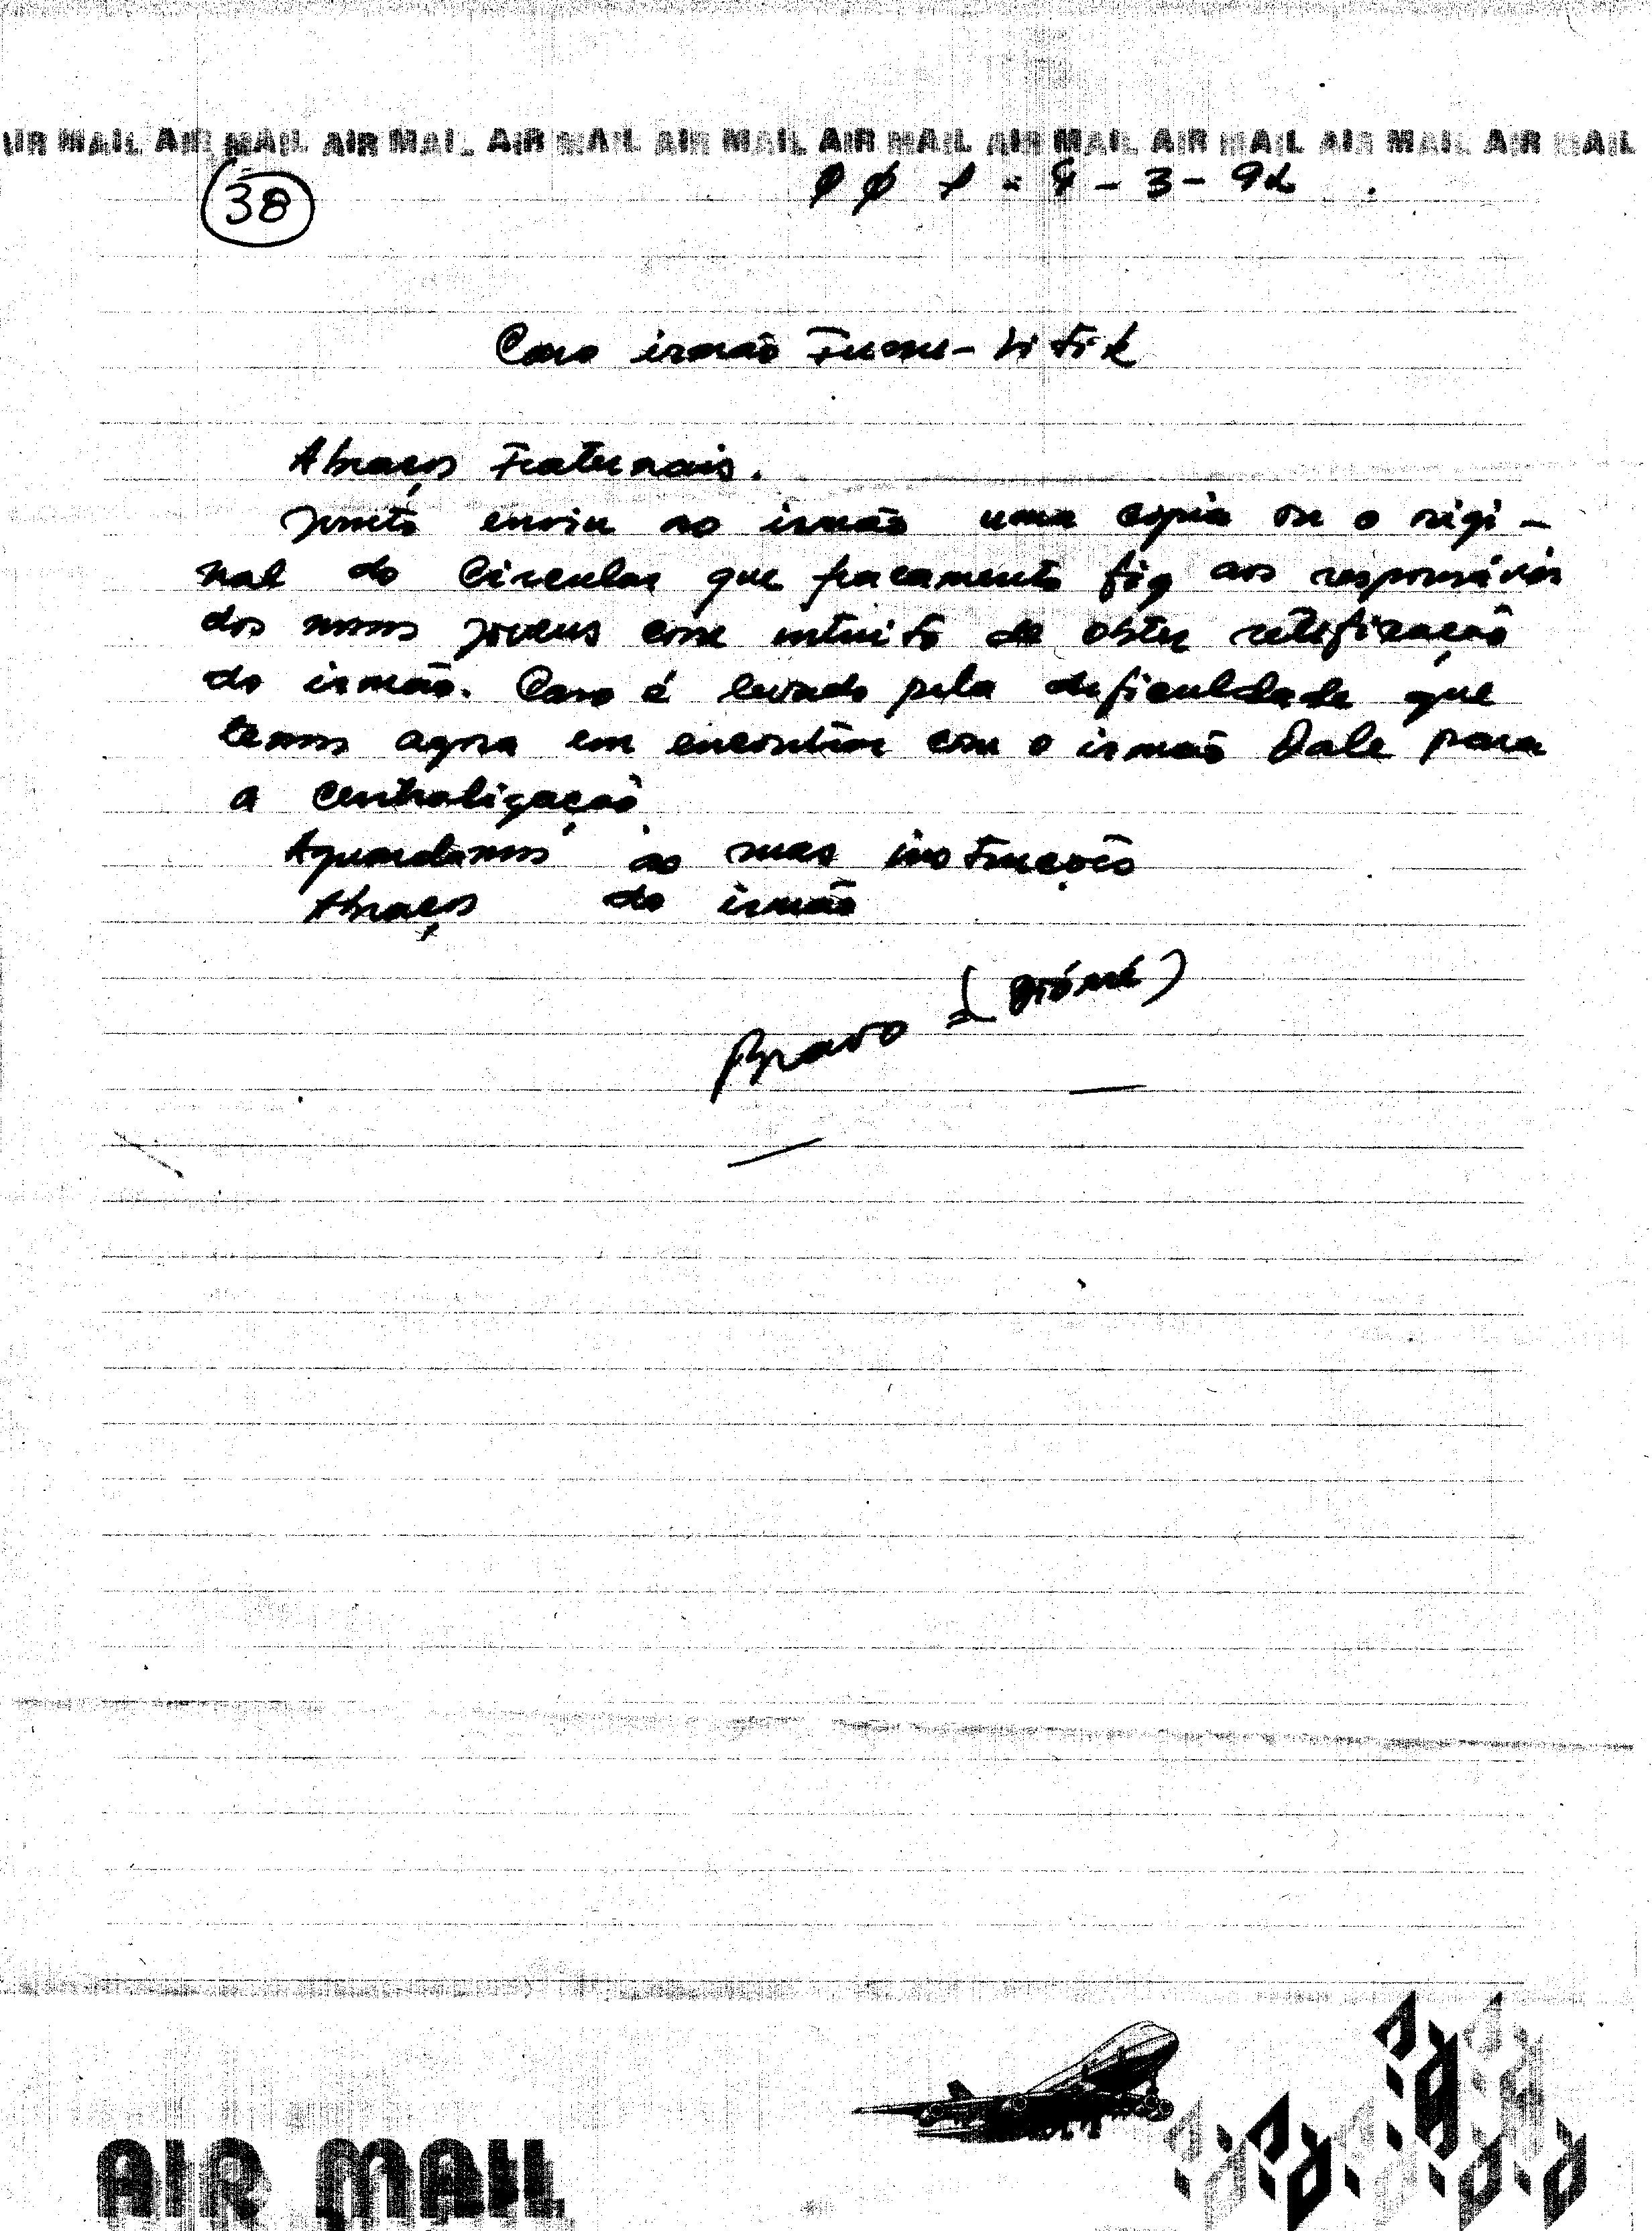 AIR MAIL AIR MAIL AIR MAIL AIR MAIL AIR MAIL AIR MAIL AIR MAIL AIR MAIL AIR MAIL AIR MAIL
38
3-92
Caro irmão
Abraços Fraternais.
Junto envio ao irmão uma copia ou o origi-
nal do Circular que fracamente fiz aos responsáveis
dos nossos jovens com intuito de obter retificação
do irmão. Caso é levado pela deficuldade que
temos agora em encontrar com o irmão Dale para
a centralização.
Aguardamos as suas instruções
Abraços do irmão
Bravo
AIR MAIL